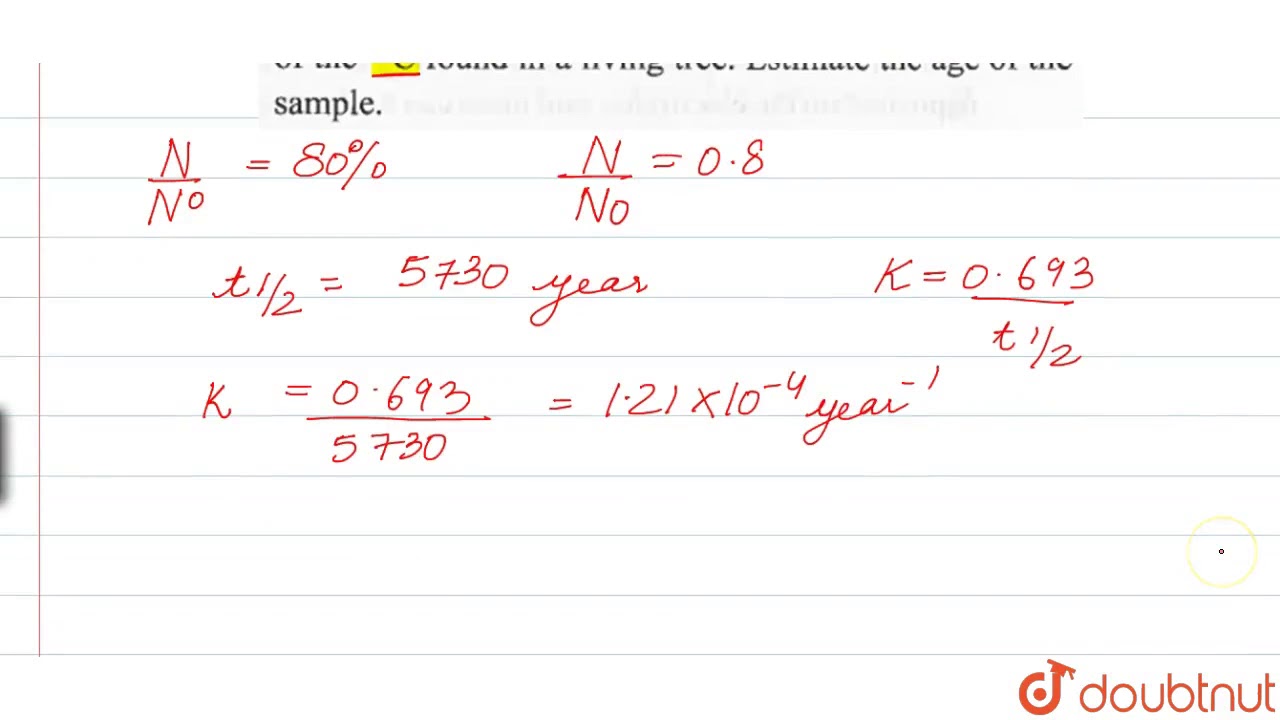 of the C found in a living tree. Estimate the age of the
sample.
N/N0 = 80% N/N0 = 0.8
t1/2 = 5730 year K = 0.693/t1/2
K = 0.693/5730 = 1.21 × 10⁻⁴ year⁻¹
doubtnut